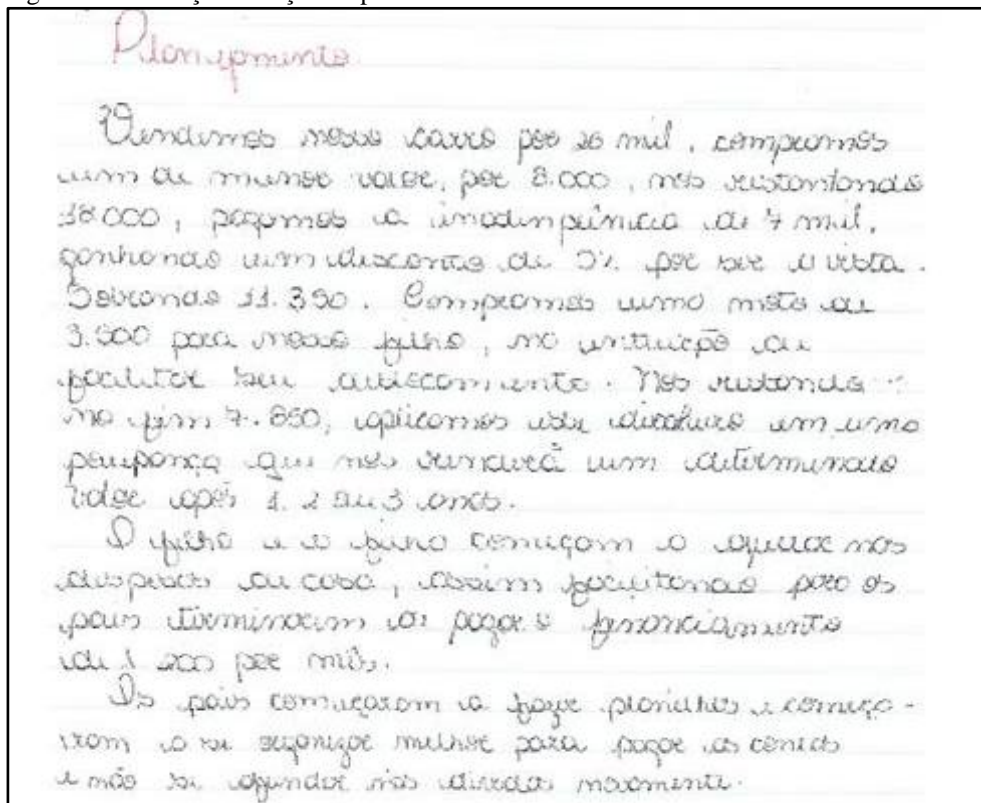 Planejamento.
Vendemos nosso carro por 26 mil, compramos
um de menor valor, por 8.000, nos restantando
18.000, pagamos a inadinpência de 7 mil,
ganhando um disconto de 5% por ser a vista.
Sobrando 11.350. Compramos uma moto de
3.500 para nosso filho, na intuição de
facilitar seu deslocamento. Nos restando
no fim 7.850, aplicamos esse dinheiro em uma
poupança que nos renderá um determinado
valor após 1, 2 ou 3 anos.
O filho e a filha começam a ajudar nas
despesas de casa, assim facilitando para os
pais terminarem de pagar o financiamento
de 1 200 por mês.
Os pais começaram a fazer planilhas e começa-
ram a se organizar melhor para pagar as contas
e não se afundar nas dívidas novamente.